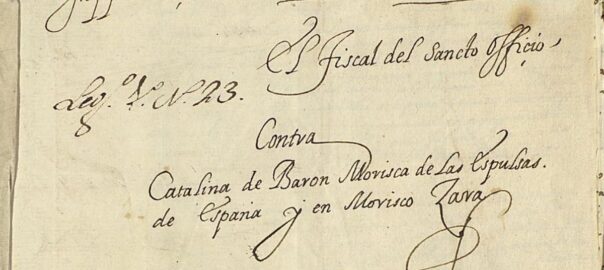 El Fiscal del Sancto officio,
Leg.º V.º N.º 23.
Contra
Catalina de Baron Morisca de las Espulsas.
de España y en Morisco Zara